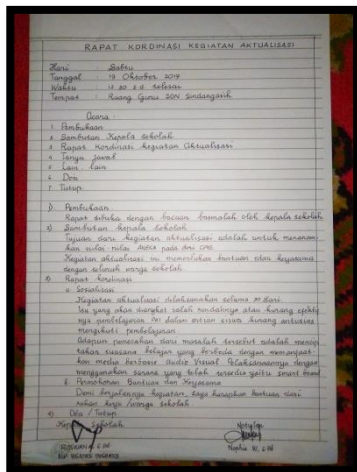 RAPAT KORDINASI KEGIATAN AKTUALISASI
Hari : Sabtu
Tanggal : 19 Oktober 2019
Waktu : 12.30 s.d selesai
Tempat : Ruang Guru SDN Sindangasih
Acara :
1. Pembukaan
2. Sambutan Kepala Sekolah
3. Rapat Kordinasi kegiatan Aktualisasi
4. Tanya jawab
5. Lain-lain
6. Doa
7. Tutup
1) Pembukaan
Rapat dibuka dengan bacaan basmalah oleh kepala sekolah
2) Sambutan kepala sekolah
Tujuan dari kegiatan aktualisasi adalah untuk menanam
kan nilai-nilai pada diri CPNS
Kegiatan aktualisasi ini memerlukan bantuan dan kerjasama
dengan seluruh warga sekolah
3) Rapat kordinasi
a. Sosialisasi
Kegiatan aktualisasi dilaksanakan selama 30 hari.
Isu yang akan diangkat ialah rendahnya atau kurang efektif
nya pembelajaran PAI dalam siswa kurang antusias
mengikuti pembelajaran
Adapun pemecahan dari masalah tersebut adalah mencip
takan suasana belajar yang berbeda dengan memanfaat
kan media berbasis Audio Visual. Pelaksanaannya dengan
menggunakan sarana yang telah tersedia yaitu smart board
b. Permohonan Bantuan dan Kerjasama
Demi berjalannya kegiatan, saya harapkan bantuan dari
rekan kerja/warga sekolah
4) Doa / Tutup
Kepala Sekolah
Notulen
S.Pd